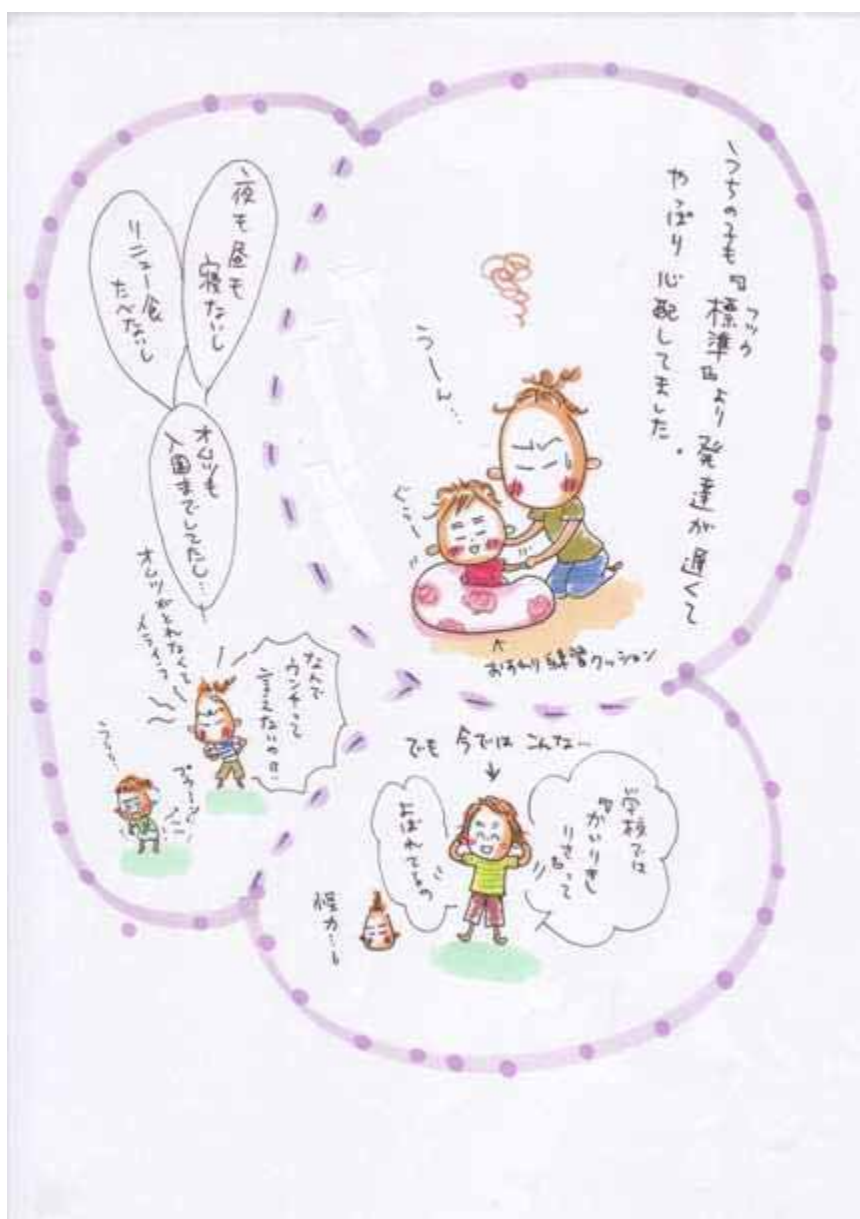 うちの子も『標準』より発達が遅くて
フツウ
やっぱり心配してました。
うーん…
ぐらー
おすわり練習クッション
夜も昼も
寝ないし
リニュー食
たべないし
オムツも
入園までしてたし…
オムツがとれなくて
イライラ
なんで
ウンチって
言えないの
うーん…
プゥーン
でも 今では こんな…
学校では
りさって
よばれてるの